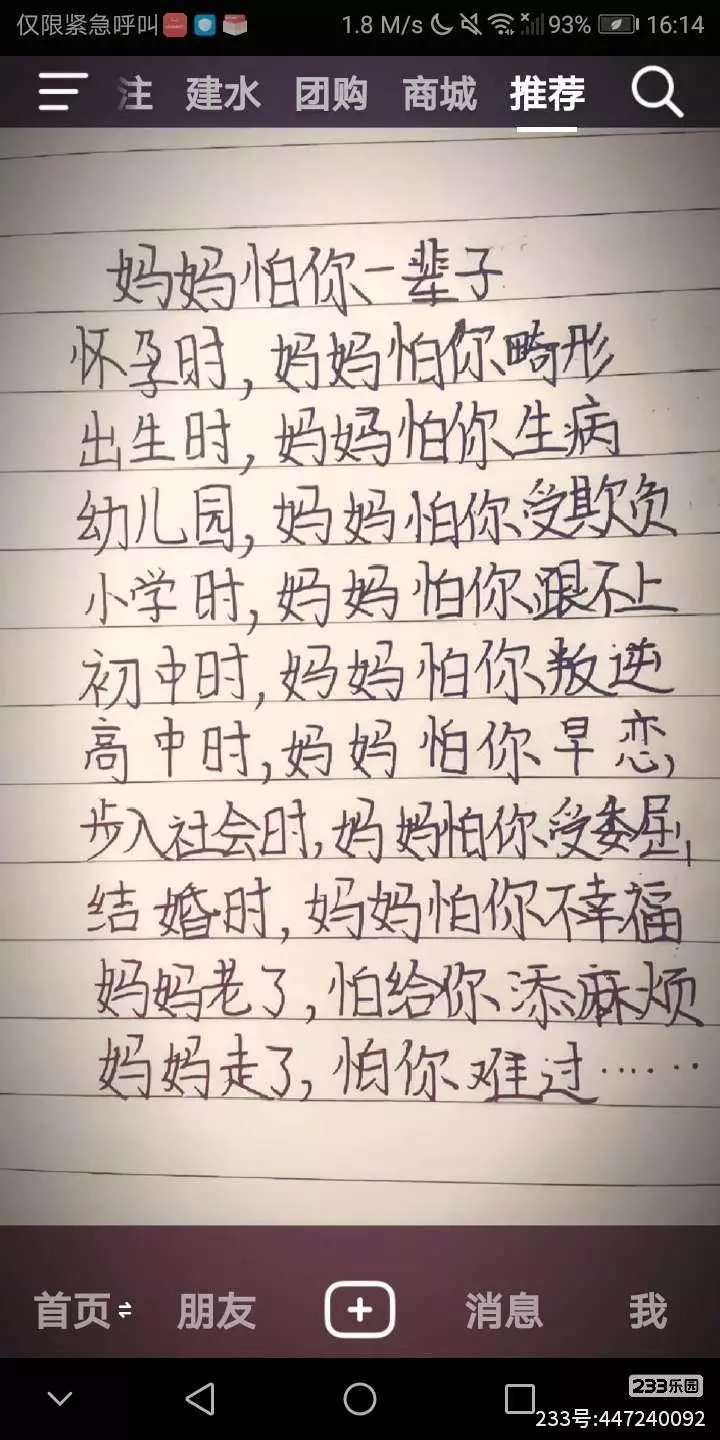 仅限紧急呼叫 1.8 M/s 93% 16:14
注 建水 团购 商城 推荐
妈妈怕你一辈子
怀孕时,妈妈怕你畸形
出生时,妈妈怕你生病
幼儿园,妈妈怕你受欺负
小学时,妈妈怕你跟不上
初中时,妈妈怕你叛逆
高中时,妈妈怕你早恋,
步入社会时,妈妈怕你受委屈,
结婚时,妈妈怕你不幸福
妈妈老了,怕给你添麻烦
妈妈走了,怕你难过……
首页 朋友 消息 我
233乐园
233号:447240092